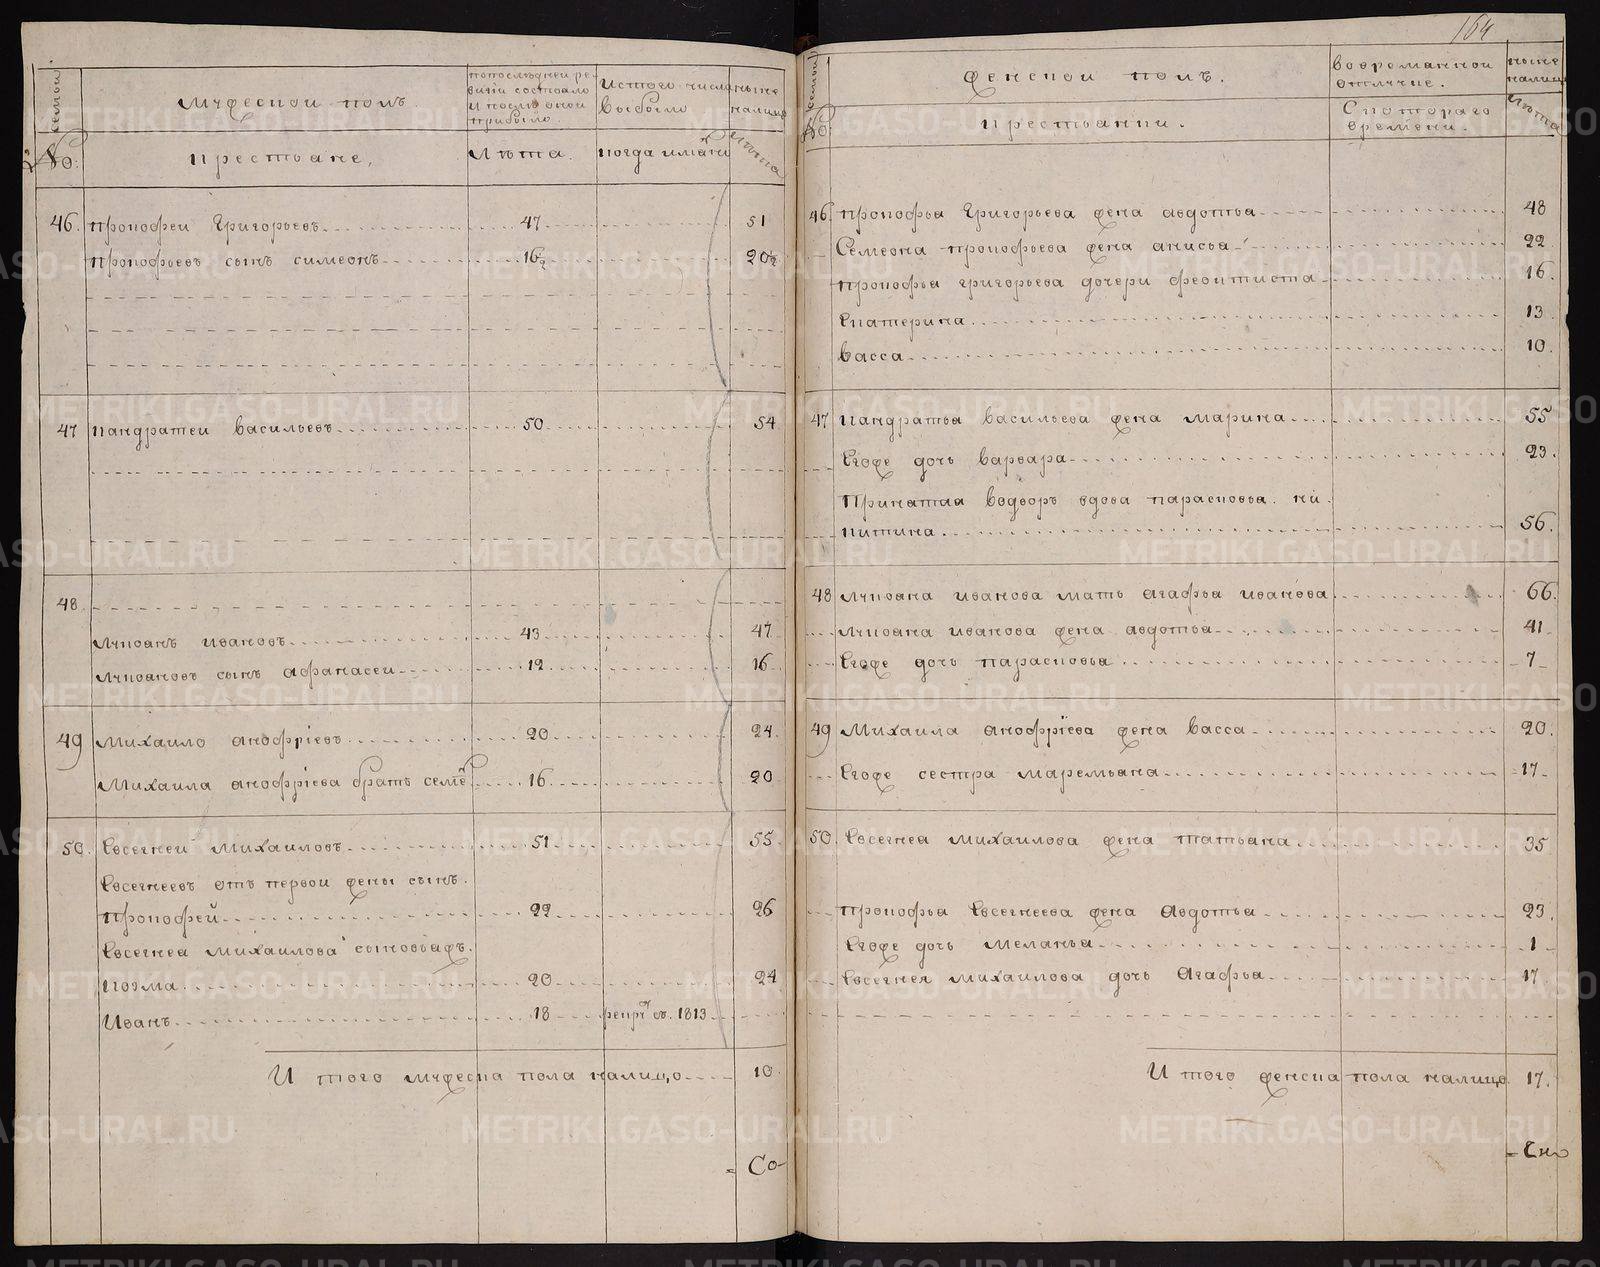 164
семьи
№
мужеской полъ.
крестьяне,
попоследней ре-
визiи состояло
и после оной
прибыло.
Лѣта.
Истого числа
выбыло
когда имянно
ныне
налицо
лѣта
46. Прокофеи Григорьевъ 47 51
Прокофьевъ сынъ симеонъ 16½ 20½
47 Кандратеи васильевъ 50 54
48.
Лукоянъ ивановъ 43 47
Лукояновъ сынъ афанасеи 12 16
49 Михаило анофрiевъ 20 24.
Михаила анофрiева братъ семе 16 20
50. Евсегнеи Михаиловъ 51 55
Евсегнеевъ отъ первои жены сынъ.
Прокофей 22 26
Евсегнея михаилова сыновья
Козма 20 24
Иванъ 18 рекрт въ. 1813
И того мужеска пола налицо 10.
= Со-
семьи
№
женскои полъ.
крестьянки.
вовременнои
отлучке.
Скотораго
времени.
ныне
налицо
лѣта
46. Прокофья Григорьева жена авдотья 48
Семеона прокофьева жена анисья 22
Прокофья григорьева дочери феоктиста 16.
Екатерина 13
Васса 10.
47 Кандратья васильева жена марина 55
Егоже дочь варвара 23.
Принятая водворъ вдова парасковья. ни-
китина. 56.
48 Лукояна иванова мать агафья иванова 66.
Лукояна иванова жена авдотья 41
Егоже дочь парасковья 7
49 Михаила анофрiева жена васса 20.
Егоже сестра маремьяна 17
50. Евсегнея михаилова жена татьяна 35
Прокофья Евсегнеева жена Авдотья 23.
Егоже дочь меланья 1
Евсегнея михаилова дочь Агафья 17
И того женска пола налицо 17.
METRIKI.GASO-URAL.RU